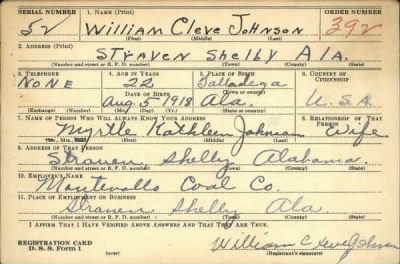 SERIAL NUMBER 1. NAME (Print) ORDER NUMBER
52 William Cleve Johnson 392
(First) (Middle) (Last)
2. ADDRESS (Print)
Straven Shelby Ala.
(Number and street or R. F. D. number) (Town) (County) (State)
3. TELEPHONE 4. AGE IN YEARS 5. PLACE OF BIRTH 6. COUNTRY OF CITIZENSHIP
None 22 Talladega
DATE OF BIRTH
Aug. 5 1918 Ala. U.S.A.
(Exchange) (Number) (Mo.) (Day) (Yr.) (State or country)
7. NAME OF PERSON WHO WILL ALWAYS KNOW YOUR ADDRESS 8. RELATIONSHIP OF THAT PERSON
Myrtle Kathleen Johnson Wife
(First) (Middle) (Last)
9. ADDRESS OF THAT PERSON
Straven Shelby Alabama.
(Number and street or R. F. D. number) (Town) (County) (State)
10. EMPLOYER'S NAME
Montevallo Coal Co.
11. PLACE OF EMPLOYMENT OR BUSINESS
Straven Shelby Ala
(Number and street or R. F. D. number) (Town) (County) (State)
I AFFIRM THAT I HAVE VERIFIED ABOVE ANSWERS AND THAT THEY ARE TRUE.
REGISTRATION CARD
D. S. S. Form 1 William Cleve Johnson
(over) (Registrant's signature)